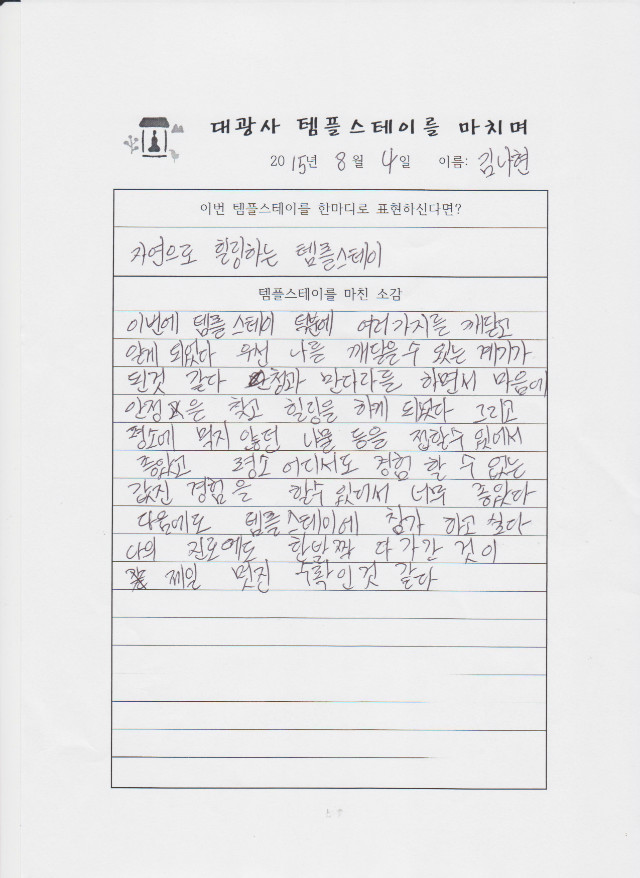 대광사 템플스테이를 마치며
2015년 8월 4일 이름: 김나현
이번 템플스테이를 한마디로 표현하신다면?
자연으로 힐링하는 템플스테이
템플스테이를 마친 소감
이번에 템플스테이 덕분에 여러가지를 깨닫고
알게 되었다 우선 나를 깨달을수 있는 계기가
된것 같다 단청과 만다라를 하면서 마음에
안정을 찾고 힐링을 하게 되었다 그리고
평소에 먹지 않던 나물 등을 접할수 있어서
좋았고 평소 어디서도 경험 할 수 없는
값진 경험을 할수 있어서 너무 좋았다
다음에도 템플스테이에 참가 하고 싶다
나의 진로에도 한발짝 다가간 것이
제일 멋진 수확인것 같다